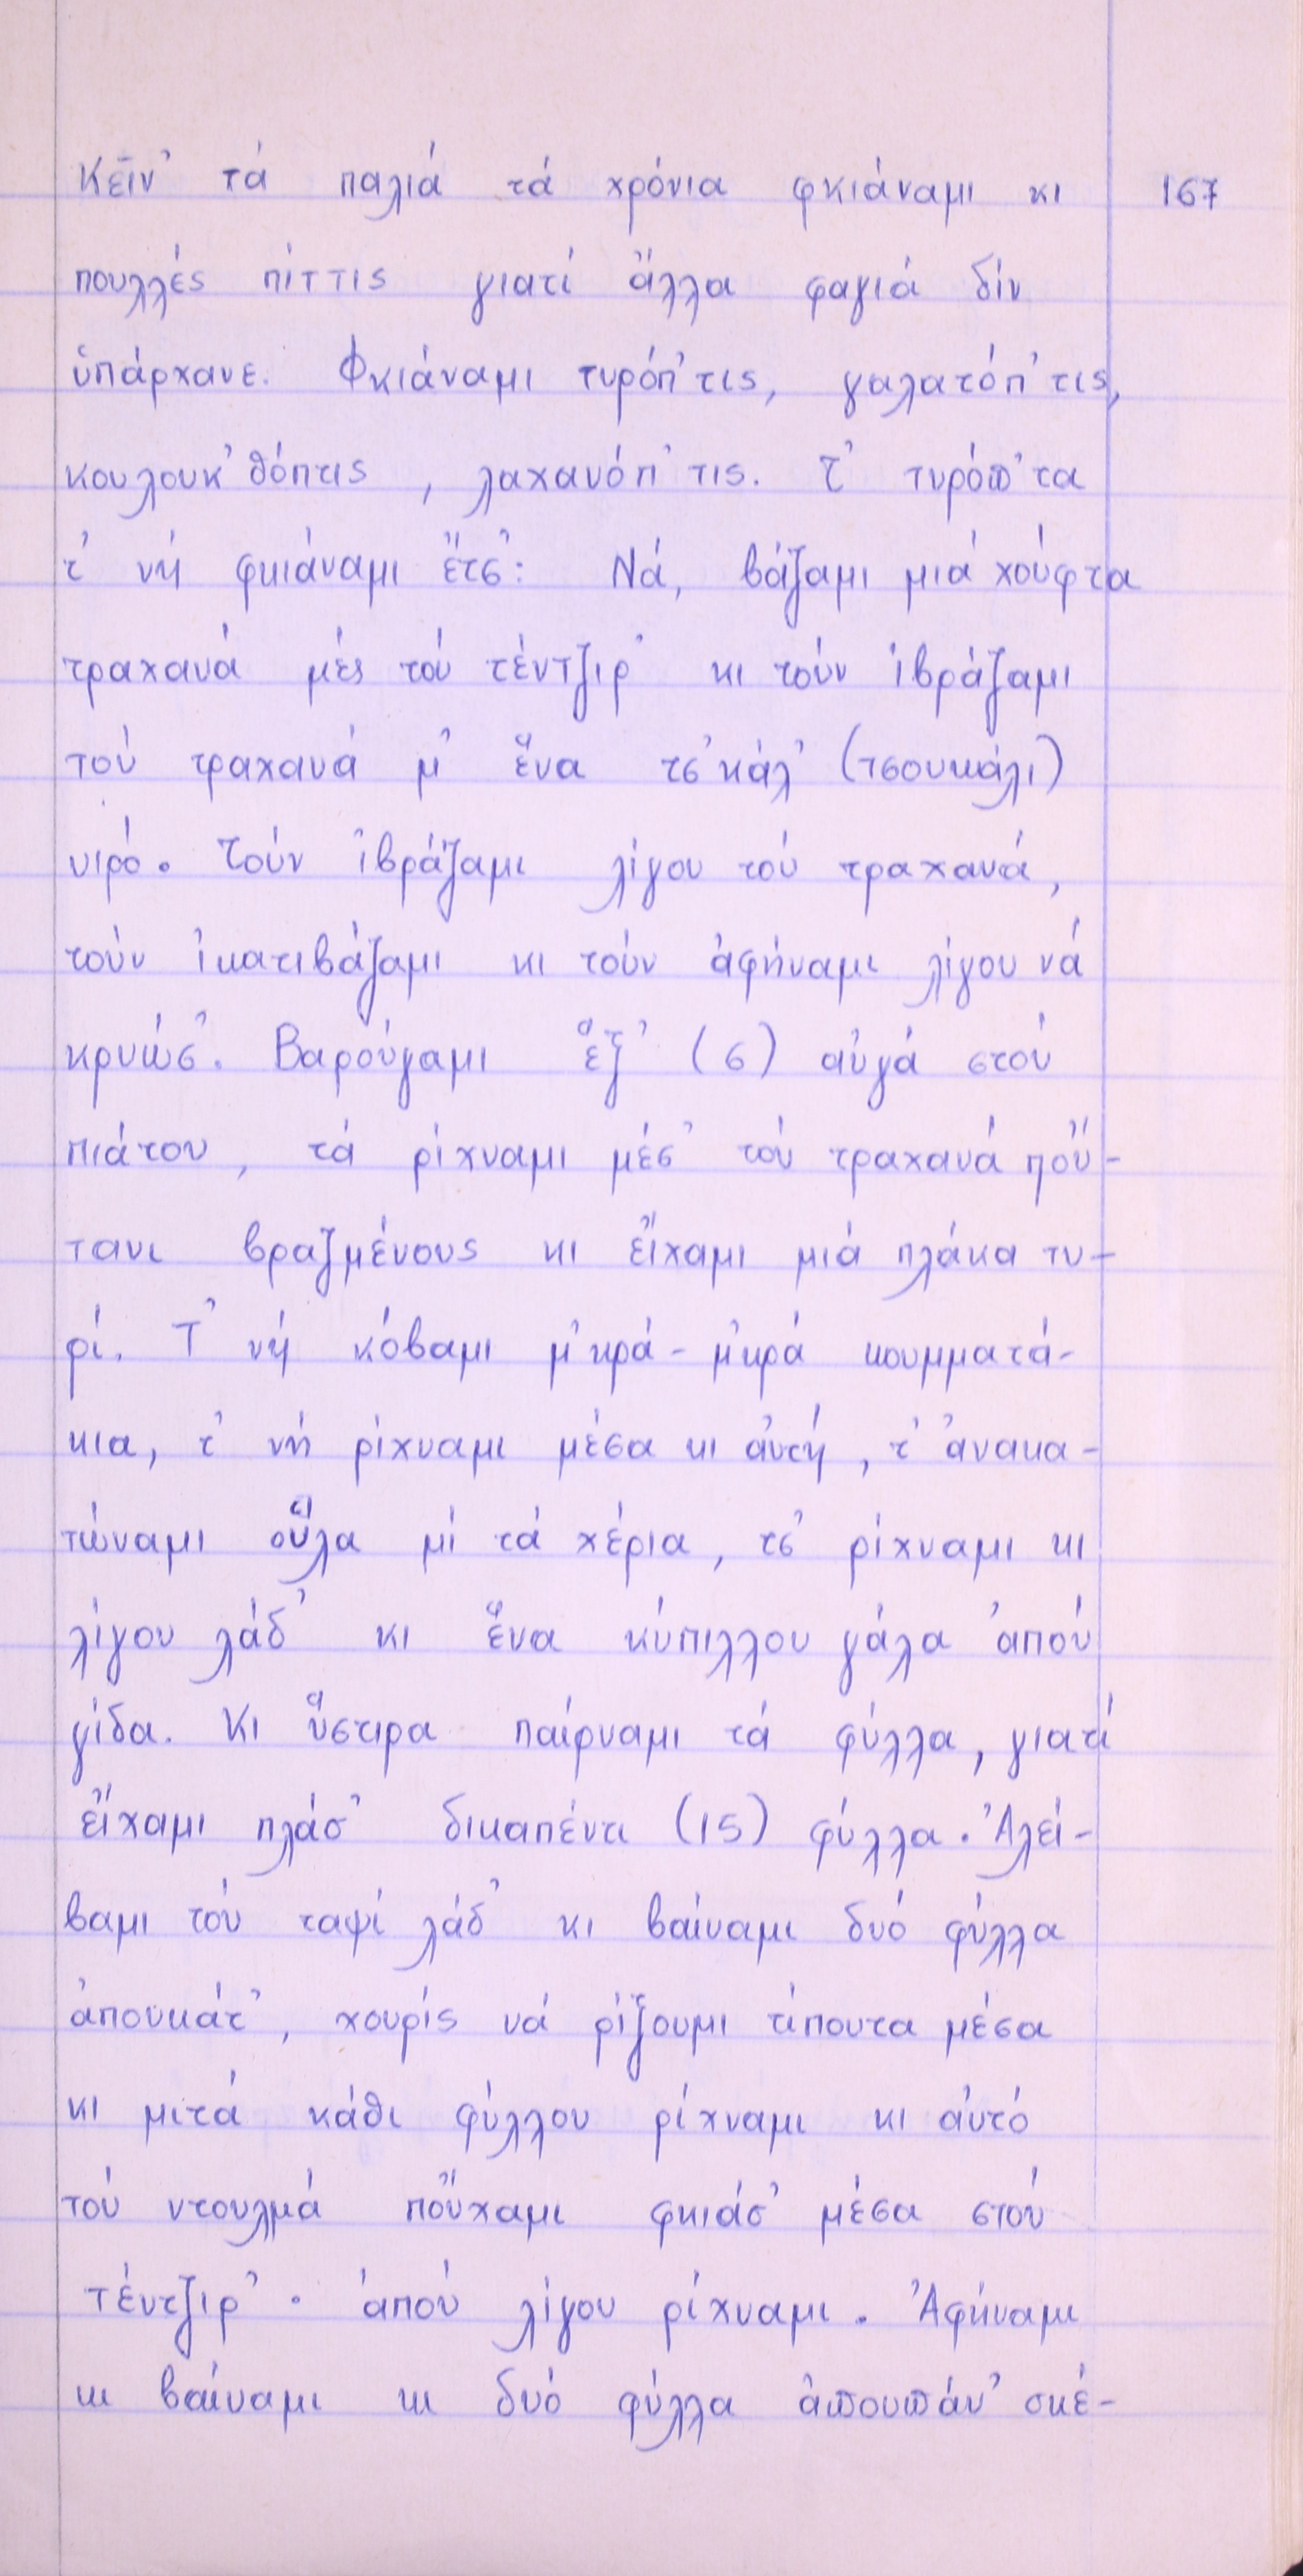 Κεῖν' τά παλιά τά χρόνια φκιάναμι κι 167
πουλλές πίττις γιατί ἄλλα φαγιά δίν
ὑπάρχανε. Φκιάναμι τυρόπ'τις, γαλατόπ'τις,
κουλουκ'θόπτις, λαχανόπ'τις. Τ' τυρόπ'τα
τ' νή φκιάναμι ἔτσ': Νά, βάζαμι μιά χούφτα
τραχανά μές τού τέντζιρ' κι τούν ἰβράζαμι
τού τραχανά μ' ἕνα τσ'κάλ' (τσουκάλι)
νιρό. Τούν ἰβράζαμι λίγου τού τραχανά,
τούν ἰκατιβάζαμι κι τούν ἀφήναμι λίγου νά
κρυώσ'. Βαρούγαμι ἕξ' (6) αὐγά στού
πιάτου, τά ρίχναμι μέσ' τού τραχανά πού ῎-
τανι βραζμένους κι εἴχαμι μιά πλάκα τυ-
ρί. Τ' νή κόβαμι μ'κρά-μ'κρά κουμματά-
κια, τ' νή ρίχναμι μέσα κι αὐτή, τ' ἀνακα-
τώναμι οὕλα μί τά χέρια, τσ' ρίχναμι κι
λίγου λάδ' κι ἕνα κύπιλλου γάλα ἀπού
γίδα. Κι ὕστιρα παίρναμι τά φύλλα, γιατί
εἴχαμι πλάσ' δικαπέντι (15) φύλλα. Ἀλεί-
βαμι τού ταψί λάδ' κι βαίναμι δυό φύλλα
ἀπουκάτ', χουρίς νά ρίξουμι τίπουτα μέσα
κι μιτά κάθι φύλλου ρίχναμι κι αὐτό
τού ντουλμά πού ῎χαμι φκιάσ' μέσα στού
τέντζιρ' · ἀπού λίγου ρίχναμι. Ἀφήναμι
κι βαίναμι κι δυό φύλλα ἀπουπάν' σκέ-